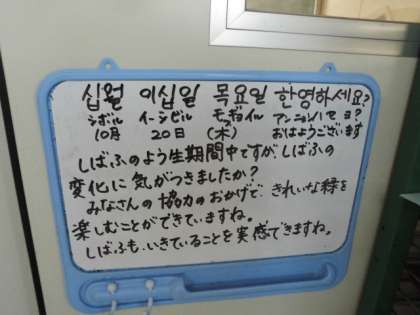 십월 이십일 목요일 한영하세요?
シボル イーシビル モギョイル アンニョハセヨ?
10月 20日 (木) おはようございます
しばふのよう生期間中ですが、しばふの
変化に気がつきましたか?
みなさんの協力のおかげで、きれいな緑を
楽しむことができていますね。
しばふも、いきていることを実感できますね。